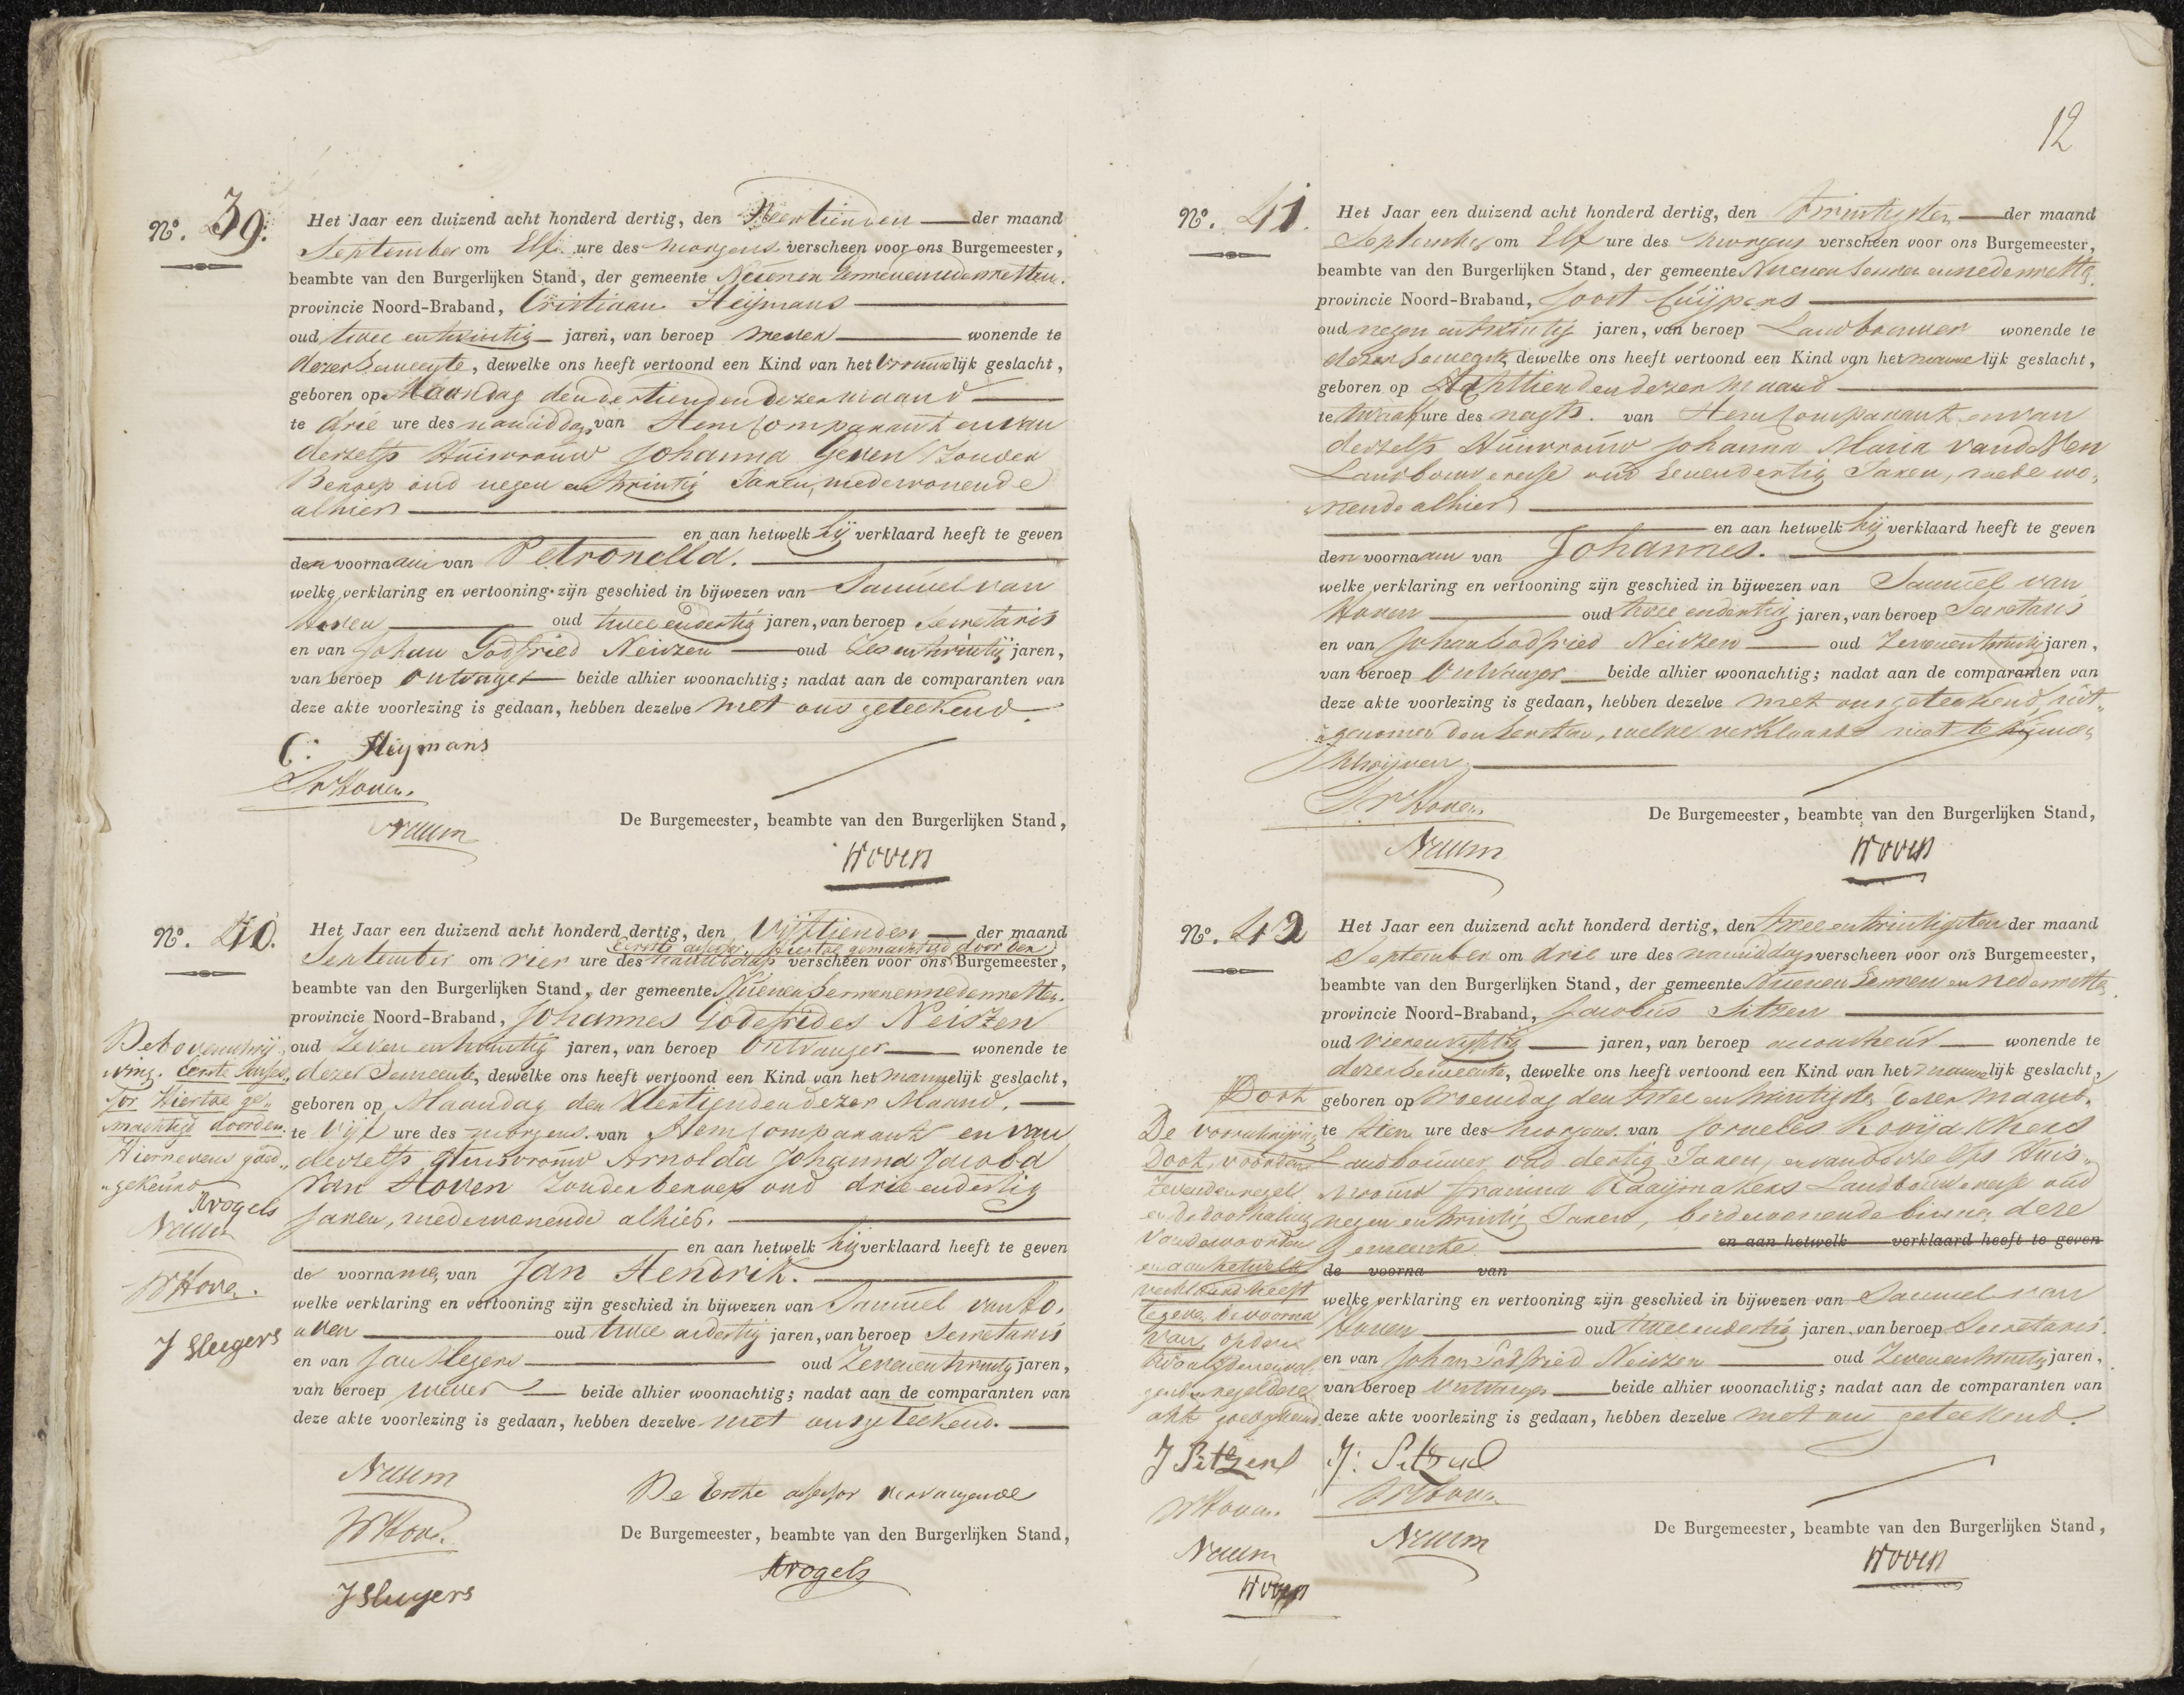 No. 39.
Het Jaar een duizend acht honderd dertig, den Veertienden der maand
September om Elf ure des morgens verscheen voor ons Burgemeester,
beambte van den Burgerlijken Stand, der gemeente Nuenen Gerwen en nederwetten.
provincie Noord-Braband, Cristiaan Heijmans
oud twee en twintig jaren, van beroep wever wonende te
dezer Gemeente, dewelke ons heeft vertoond een Kind van het vrouwelijk geslacht,
geboren op Maandag den dertienden dezer maand
te drie ure des namiddags van Hem Comparant en van
deszelfs Huisvrouw Johanna Geven Zonder
Beroep oud negen en twintig Jaren, mede wonende
alhier
en aan hetwelk hij verklaard heeft te geven
den voornaam van Petronella.
welke verklaring en vertooning zijn geschied in bijwezen van Samuel van
Hoven oud twee en dertig jaren, van beroep Secretaris
en van Johan Godfried Neiszen oud Zes en twintig jaren,
van beroep Ontvanger beide alhier woonachtig; nadat aan de comparanten van
deze akte voorlezing is gedaan, hebben dezelve met ons geteekend.
C: Heijmans
SvHoven.
De Burgemeester, beambte van den Burgerlijken Stand,
No. 40.
Het Jaar een duizend acht honderd dertig, den Vijftienden der maand
Eerste assessor, Hiertoe gemachtigd door den
September om vier ure des namiddags verscheen voor ons Burgemeester,
beambte van den Burgerlijken Stand, der gemeente Nuenen Gerwen en nederwetten.
provincie Noord-Braband, Johannes Godefrides Neiszen
oud Zeven en twintig jaren, van beroep Ontvanger wonende te
dezer Gemeente, dewelke ons heeft vertoond een Kind van het mannelijk geslacht,
geboren op Maandag den dertienden dezer Maand.
te Vijf ure des morgens van Hem Comparant en van
deszelfs Huisvrouw Arnolda Johanna Jacoba
van Hoven Zonder beroep oud drie en dertig
jaren, mede wonende alhier.
en aan hetwelk hij verklaard heeft te geven
de voorname, van Jan Hendrik.
welke verklaring en vertooning zijn geschied in bijwezen van Samuel van Ho,
oven oud twee en dertig jaren, van beroep Secretaris
en van Jan Slegers oud Zeven en twintig jaren,
van beroep wever beide alhier woonachtig; nadat aan de comparanten van
deze akte voorlezing is gedaan, hebben dezelve met ons geteekend.
De bovenschrij,
ving. eerste asses,
sor Hiertoe ge,
machtigd door den
Hiernevens goed,,
gekeurd
Kvogels
J Slegers
De Eerste assessor vervangende
De Burgemeester, beambte van den Burgerlijken Stand,
Kvogels
J Slegers
12
No. 41.
Het Jaar een duizend acht honderd dertig, den twintigsten der maand
September om Elf ure des morgens verscheen voor ons Burgemeester,
beambte van den Burgerlijken Stand, der gemeente Nuenen Gerwen en nederwette
provincie Noord-Braband, Joost Cuijpers
oud negen en twintig jaren, van beroep Landbouwer wonende te
dezer Gemeente, dewelke ons heeft vertoond een Kind van het mannelijk geslacht,
geboren op Achttienden dezer maand
te twaalf ure des nagts. van Hem Comparant en van
deszelfs Huisvrouw Johanna Maria van
Landbouweresse oud Zevendertig Jaren, mede wo,
nende alhier
en aan hetwelk hij verklaard heeft te geven
den voornaam van Johannes.
welke verklaring en vertooning zijn geschied in bijwezen van Samuel van
Hoven oud twee en dertig jaren, van beroep Secretaris
en van Johan Godfried Neiszen oud Zeven en twintig jaren,
van beroep Ontvanger beide alhier woonachtig; nadat aan de comparanten van
deze akte voorlezing is gedaan, hebben dezelve met ons geteekend, uit,,
genomen den Eersten, welke verklaarde niet te kunnen
schrijven
SvHoven.
De Burgemeester, beambte van den Burgerlijken Stand,
No. 42
Het Jaar een duizend acht honderd dertig, den twee en twintigsten der maand
September om drie ure des namiddags verscheen voor ons Burgemeester,
beambte van den Burgerlijken Stand, der gemeente Nuenen Gerwen en nederwette
provincie Noord-Braband, Jacobus Sitzen
oud vierenvijftig jaren, van beroep accoucheur wonende te
dezer Gemeente, dewelke ons heeft vertoond een Kind van het mannelijk geslacht,
Doot geboren op Woensdag den twee en twintigste dezer maand.
te tien ure des morgens van Cornelis Rooijakkers
Landbouwer, oud dertig Jaren, en van deszelfs Huis,,
vrouw Francina Raaijmakers Landbouweresse oud
negen en twintig Jaren, beide wonende binnen deze
Gemeente. en aan hetwelk verklaard heeft te geven
de voorna van
welke verklaring en vertooning zijn geschied in bijwezen van Samuel van
Hoven oud twee en dertig jaren, van beroep Secretaris.
en van Johan Godfried Neiszen oud Zeven en twintig jaren,
van beroep Ontvanger beide alhier woonachtig; nadat aan de comparanten van
deze akte voorlezing is gedaan, hebben dezelve met ons geteekend.
De voorschrijving
Doot, voor den
Zevenden regel
en de doorhaling
van de woorden
en aan hetwelk
verklaard heeft
te geven, de voorna
van, op den
regel dezer
akte goedgekeurd.
J Sitzen
J: Sitzen
De Burgemeester, beambte van den Burgerlijken Stand,